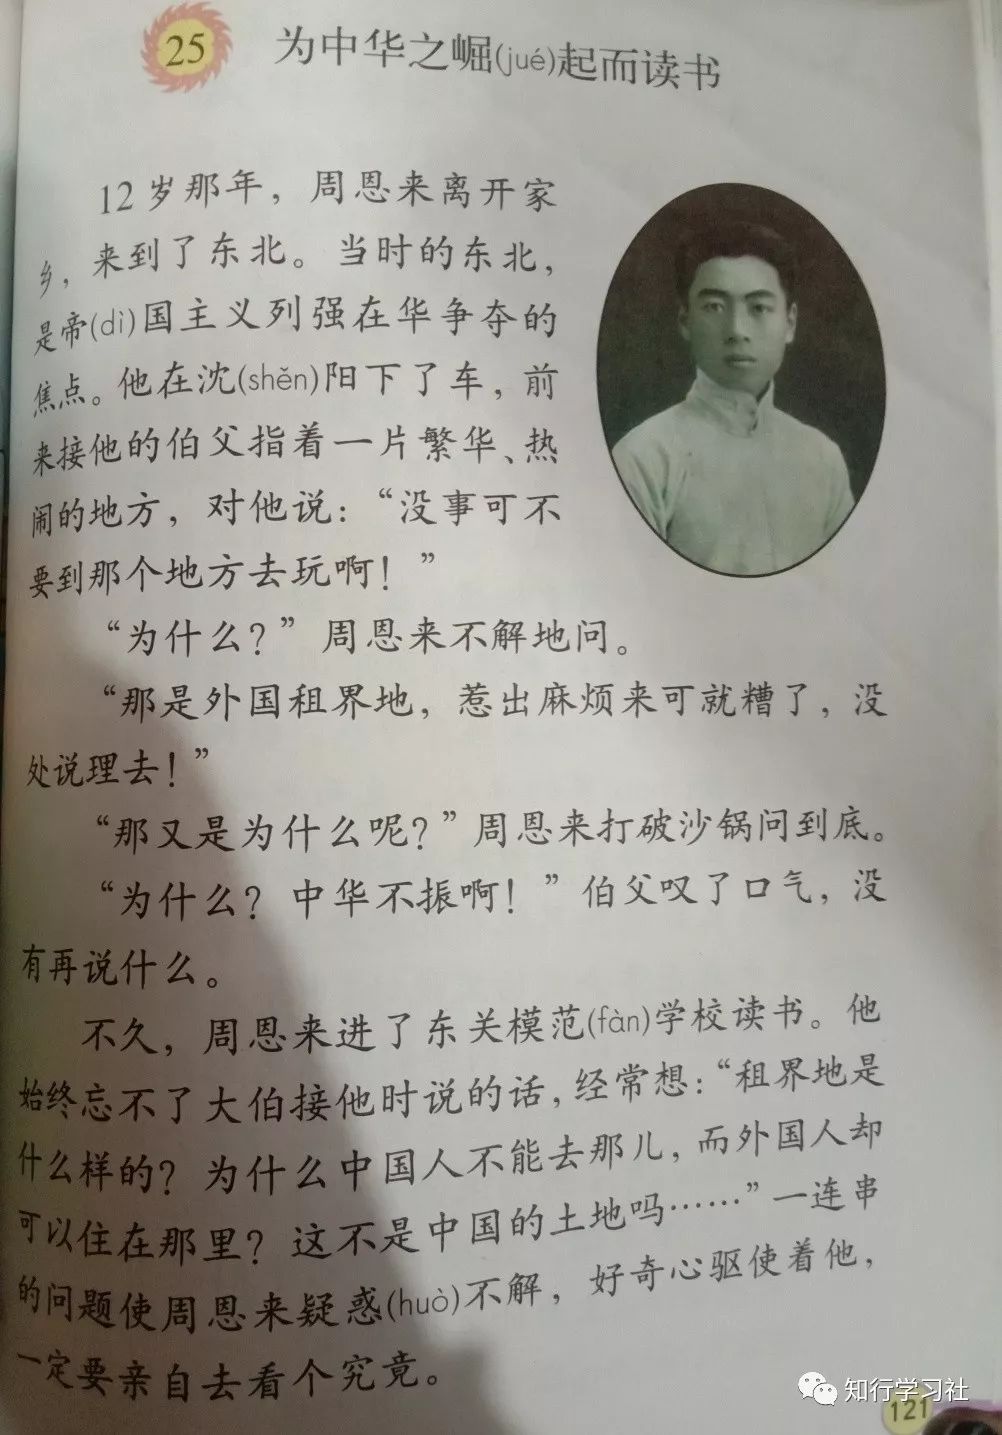 25
为中华之崛(jué)起而读书
12岁那年，周恩来离开家
乡，来到了东北。当时的东北，
是帝(dì)国主义列强在华争夺的
焦点。他在沈(shěn)阳下了车，前
来接他的伯父指着一片繁华、热
闹的地方，对他说：“没事可不
要到那个地方去玩啊！”
“为什么？”周恩来不解地问。
“那是外国租界地，惹出麻烦来可就糟了，没
处说理去！”
“那又是为什么呢？”周恩来打破沙锅问到底。
“为什么？中华不振啊！”伯父叹了口气，没
有再说什么。
不久，周恩来进了东关模范(fàn)学校读书。他
始终忘不了大伯接他时说的话，经常想：“租界地是
什么样的？为什么中国人不能去那儿，而外国人却
可以住在那里？这不是中国的土地吗……”一连串
的问题使周恩来疑惑(huò)不解，好奇心驱使着他，
一定要亲自去看个究竟。
知行学习社
121